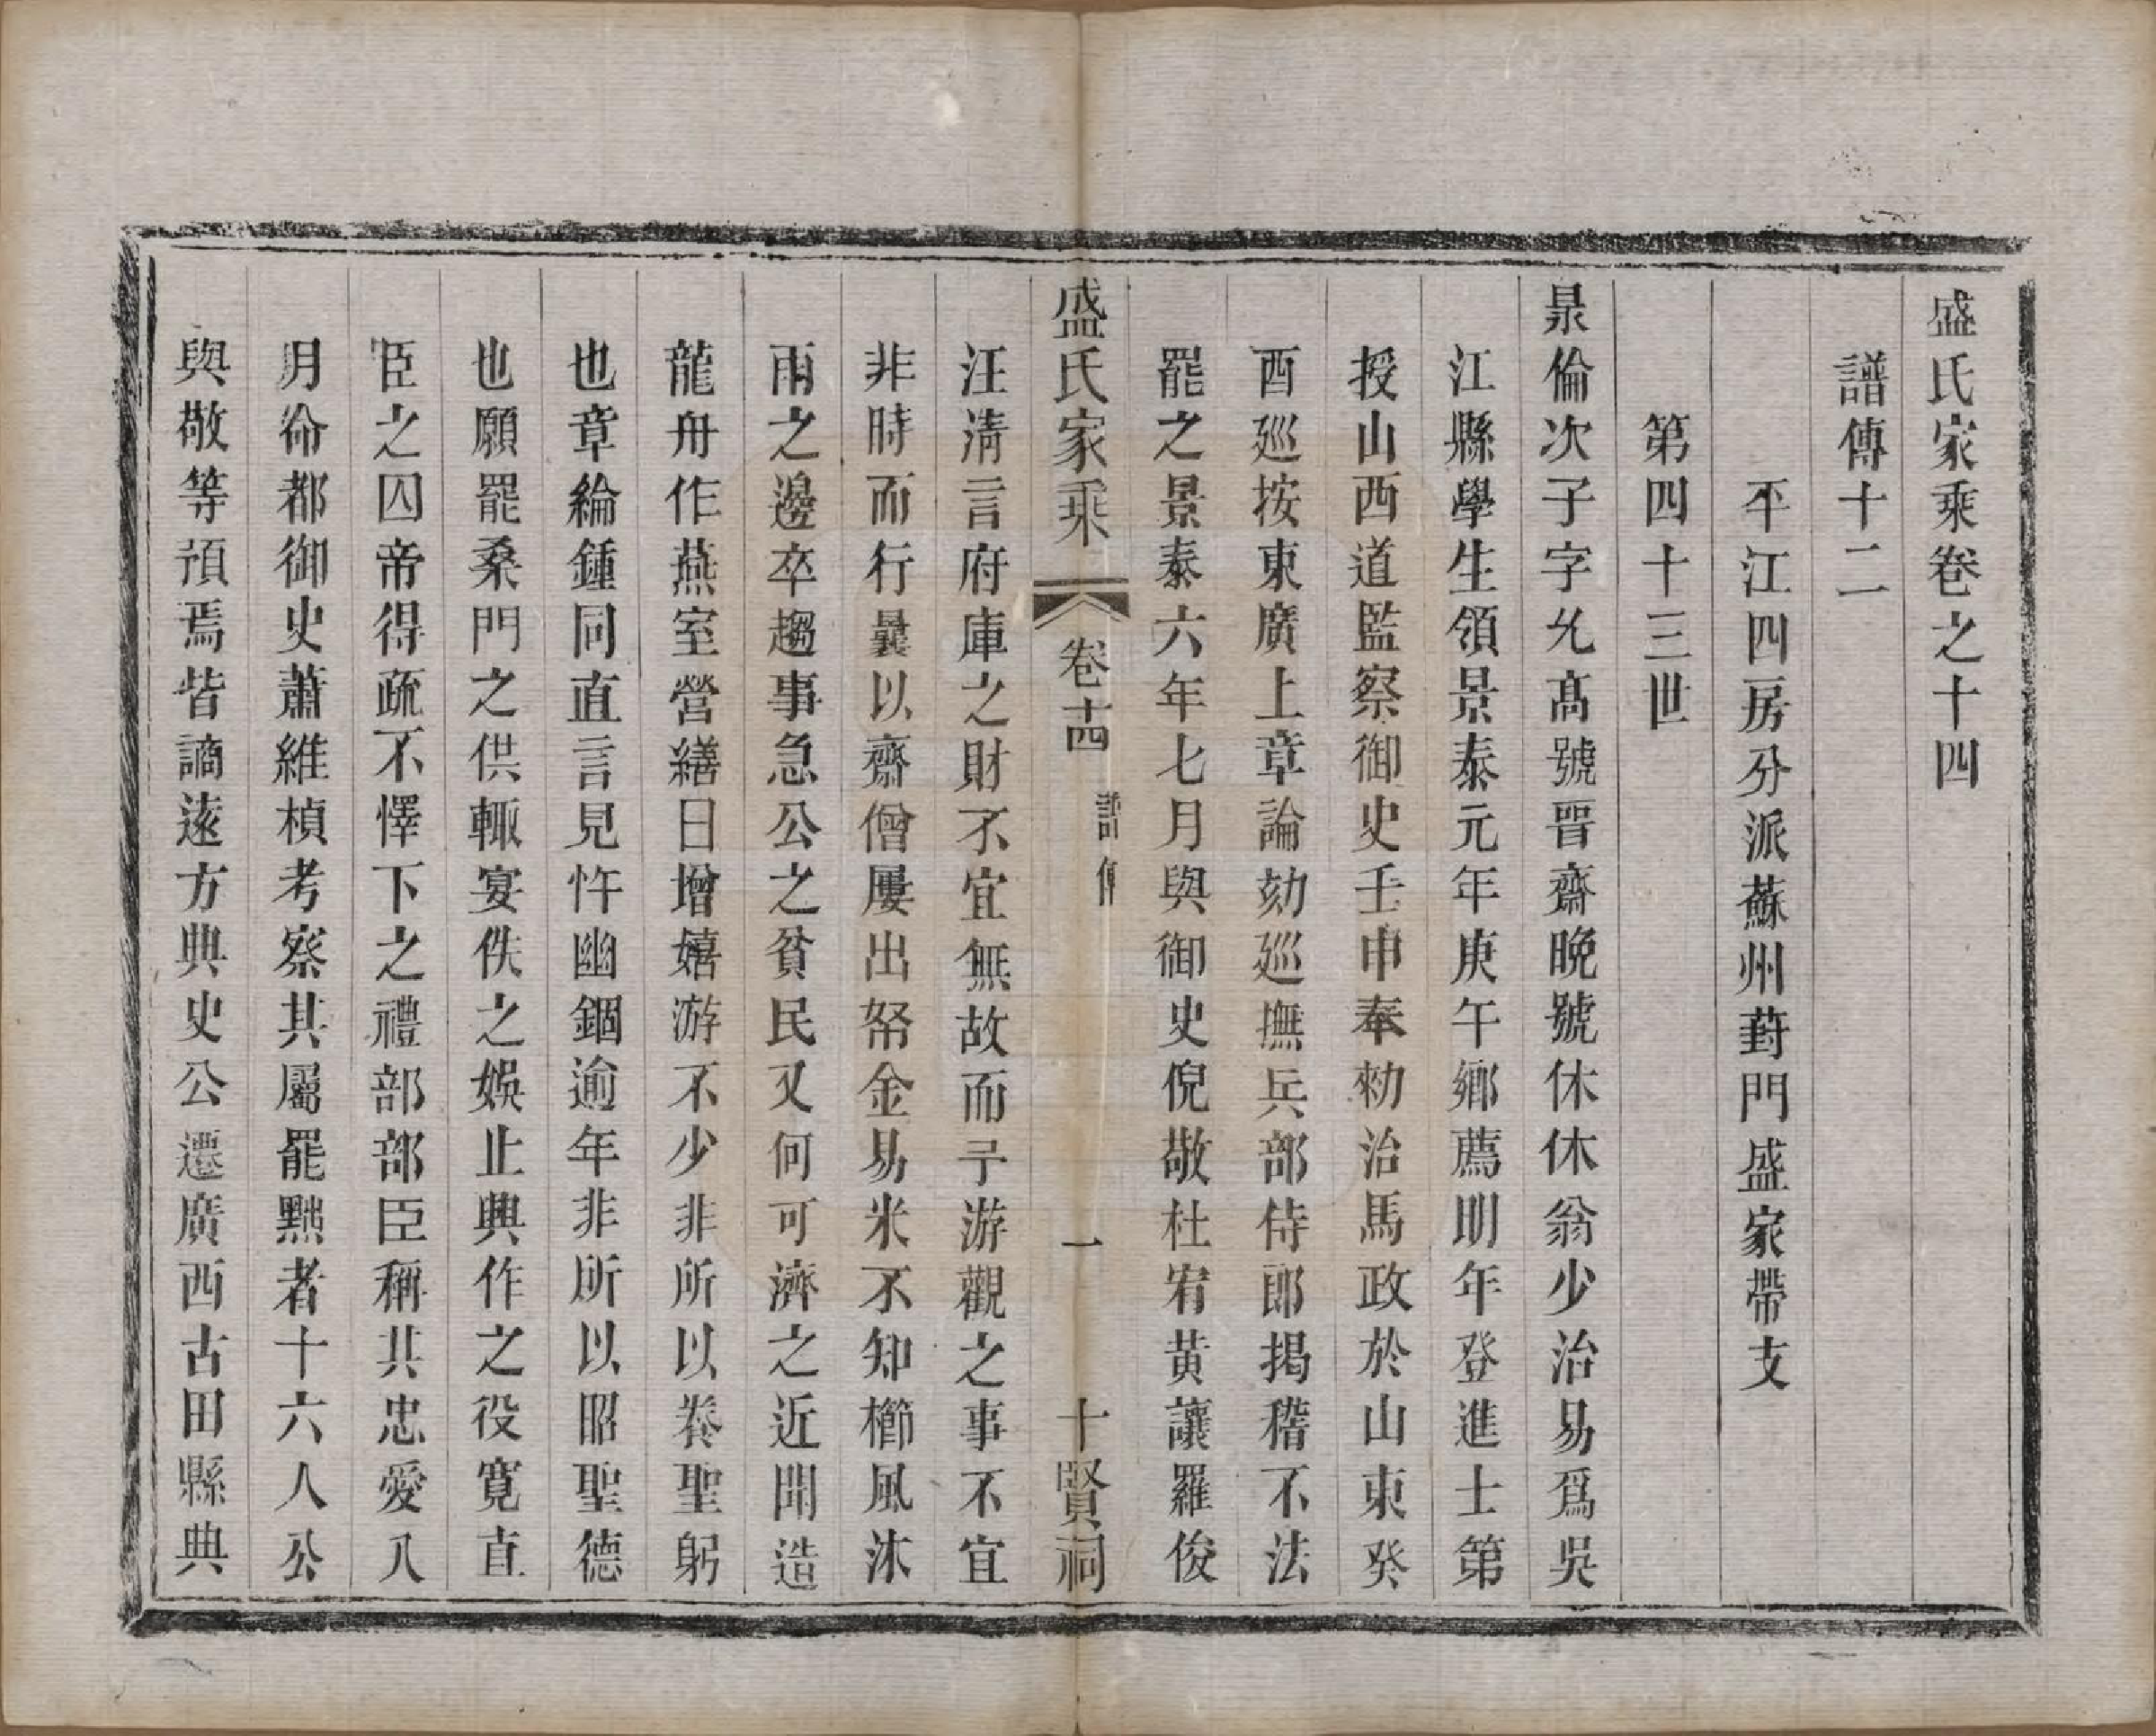 盛氏家乘卷之十四
譜傳十二
平江四房分派蘇州葑門盛家帶支
第四十三世
㫤倫次子字允高號晉齋晚號休休翁少治易爲吳
江縣學生領景泰元年庚午鄉薦明年登進士第
授山西道監察御史壬申奉勑治馬政於山東癸
酉廵按東廣上章論劾廵撫兵部侍郎揭稽不法
罷之景泰六年七月與御史倪敬杜宥黃讓羅俊
盛氏家乘 卷十四 譜傳 一 十賢祠
汪清言府庫之財不宜無故而予游觀之事不宜
非時而行曩以齋僧屢出帑金易米不知櫛風沐
雨之邊卒趨事急公之貧民又何可濟之近聞造
龍舟作燕室營繕日增嬉游不少非所以養聖躬
也章綸鍾同直言見忤幽錮逾年非所以昭聖德
也願罷桑門之供輟宴佚之娛止興作之役寛直
臣之囚帝得疏不懌下之禮部部臣稱其忠愛八
月命都御史蕭維楨考察其屬罷黜者十六人公
與敬等預焉皆謫遠方典史公遷廣西古田縣典